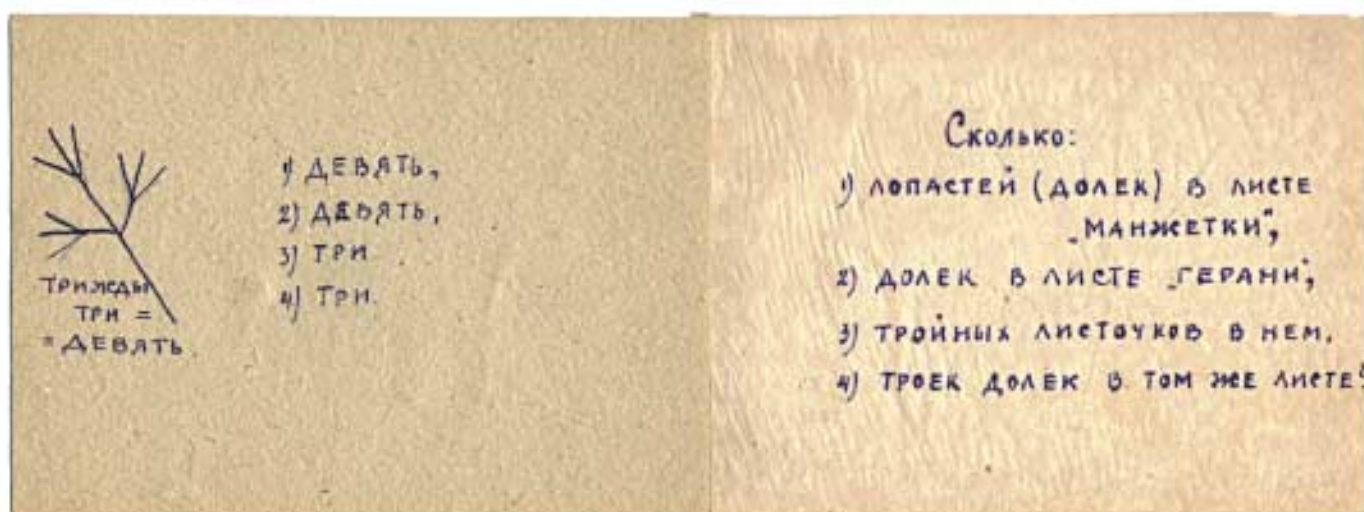 1) ДЕВЯТЬ,
2) ДЕВЯТЬ,
3) ТРИ
4) ТРИ.
ТРИЖДЫ
ТРИ =
= ДЕВЯТЬ.
Сколько:
1) ЛОПАСТЕЙ (ДОЛЕК) В ЛИСТЕ
„МАНЖЕТКИ“,
2) ДОЛЕК В ЛИСТЕ „ГЕРАНИ“,
3) ТРОЙНЫХ ЛИСТОЧКОВ В НЕМ,
4) ТРОЕК ДОЛЕК В ТОМ ЖЕ ЛИСТЕ?